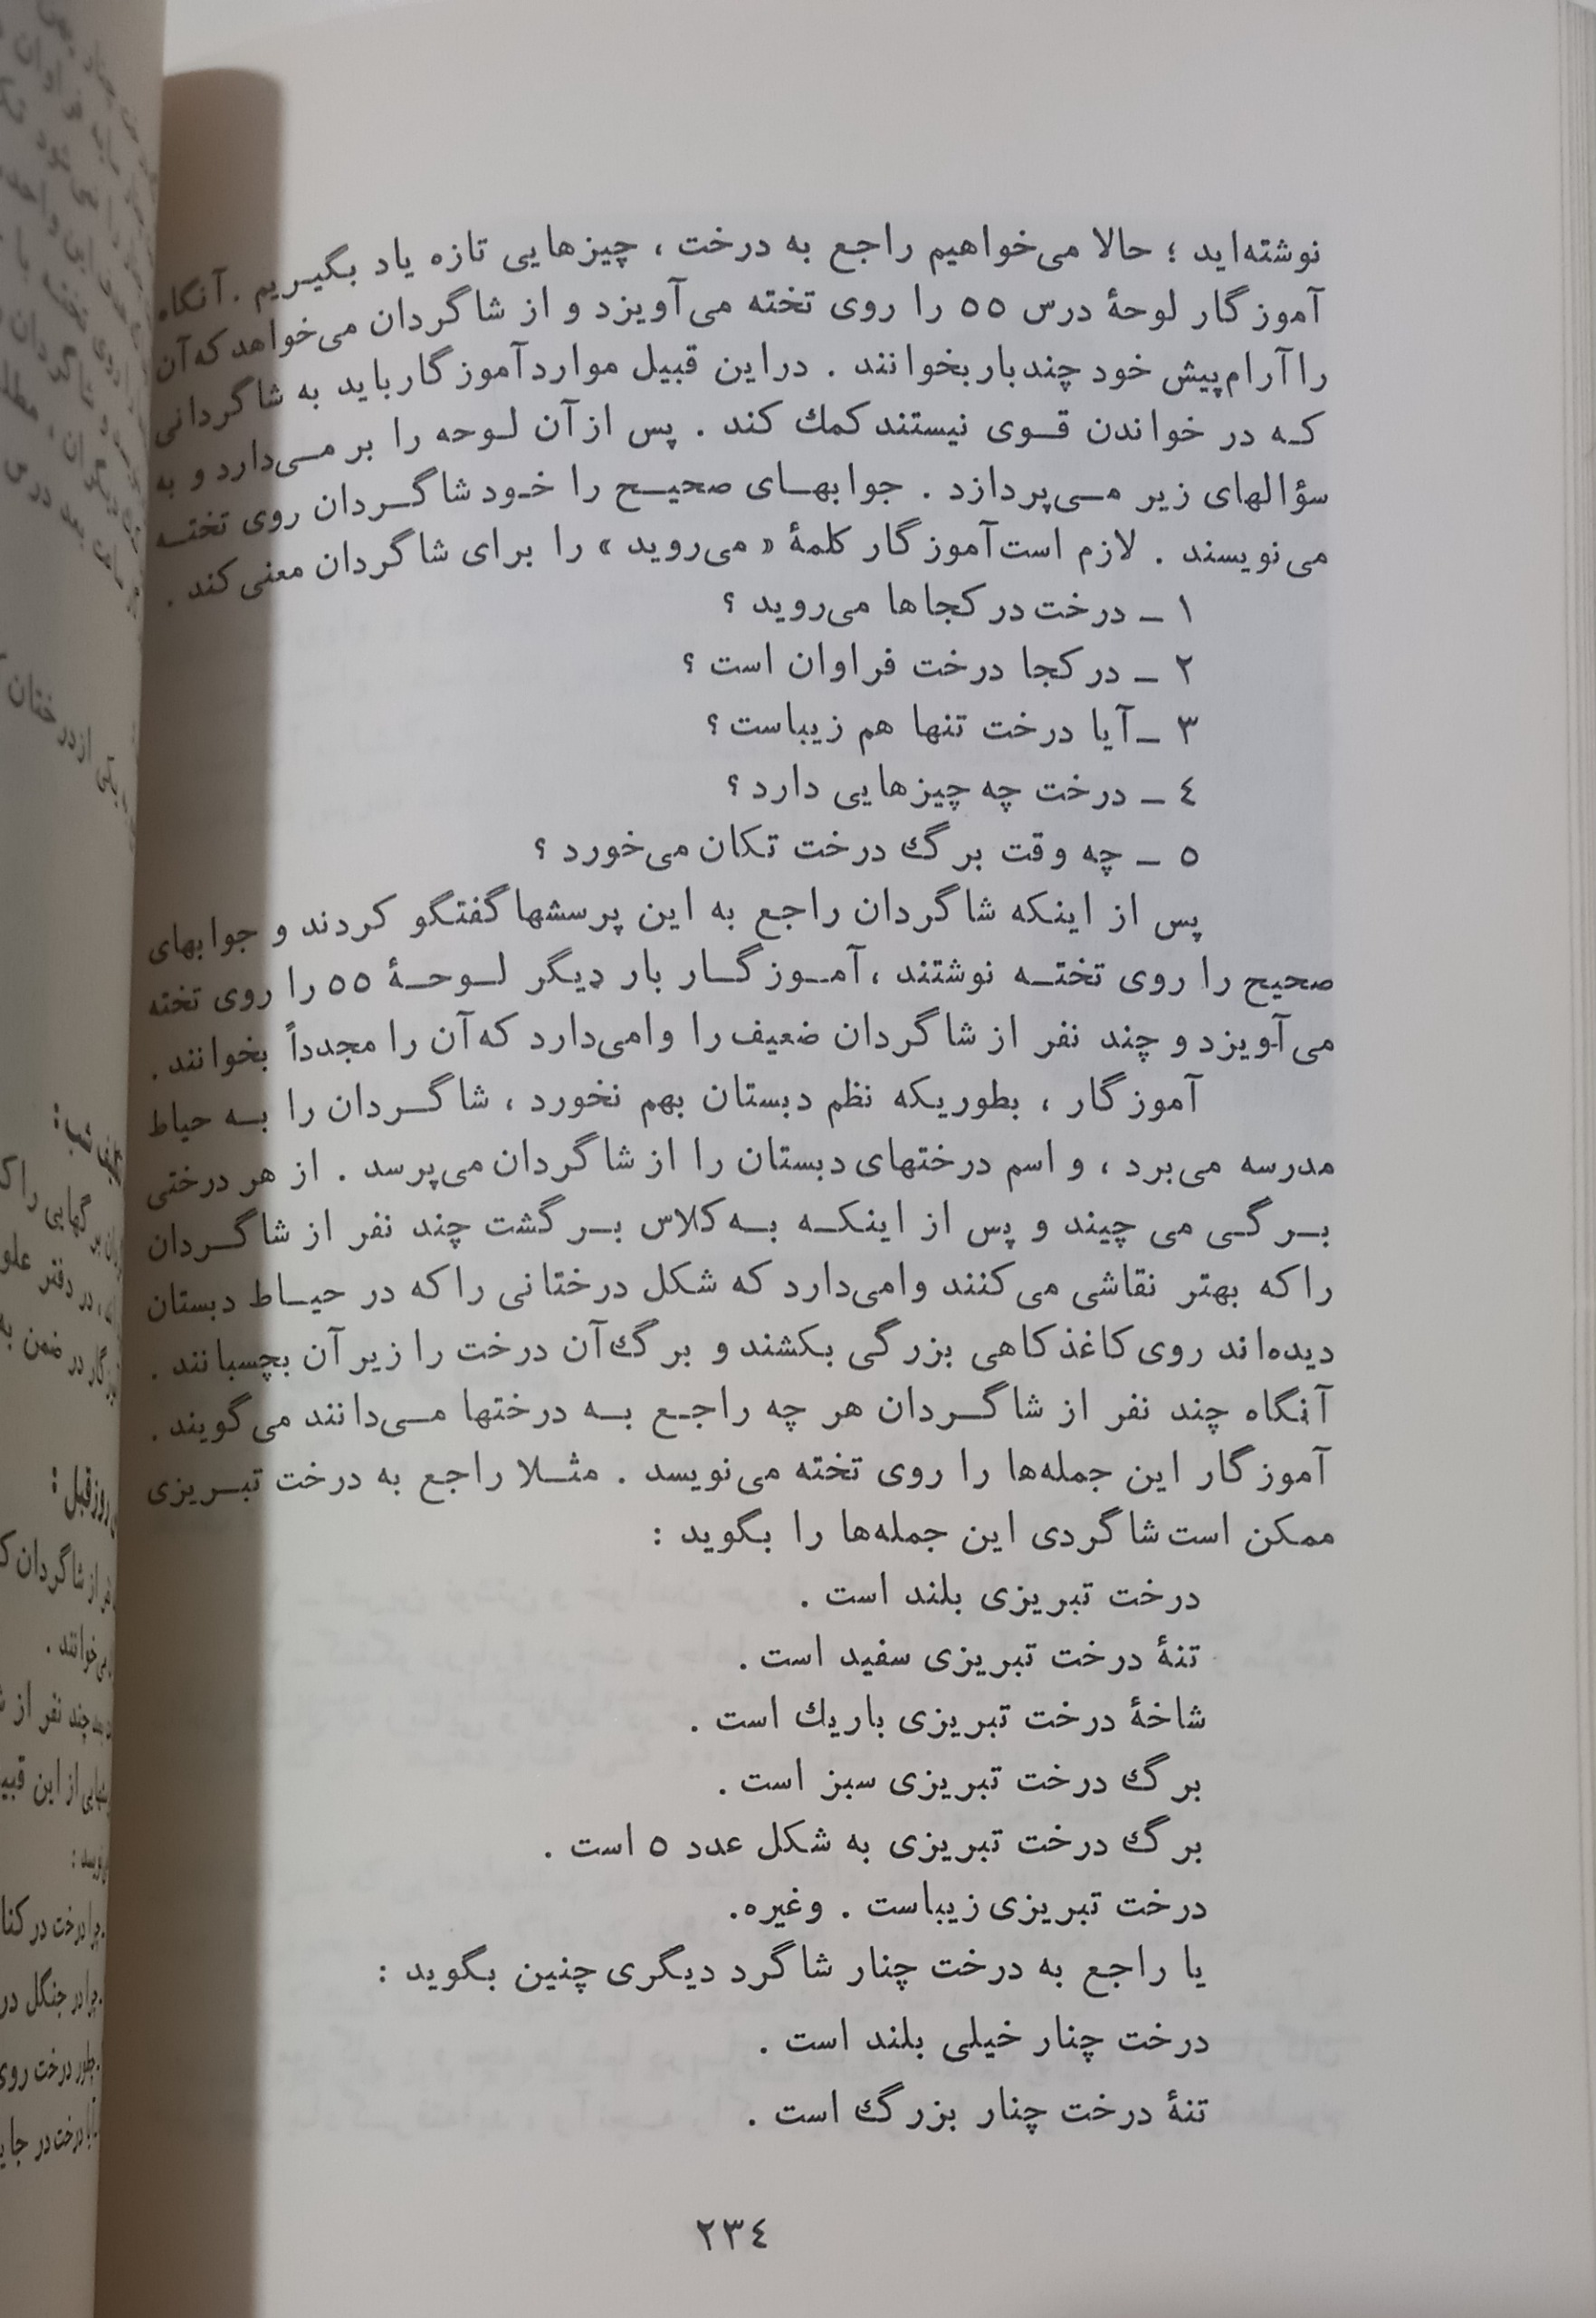 نوشته‌اید ؛ حالا می‌خواهیم راجع به درخت ، چیزهایی تازه یاد بگیریم . آنگاه
آموزگار لوحهٔ درس ٥٥ را روی تخته می‌آویزد و از شاگردان می‌خواهد که آن
را آرام پیش خود چند بار بخوانند . در این قبیل موارد آموزگار باید به شاگردانی
که در خواندن قوی نیستند کمك کند . پس از آن لوحه را بر می‌دارد و به
سؤالهای زیر می‌پردازد . جوابهای صحیح را خود شاگردان روی تخته
می‌نویسند . لازم است آموزگار کلمهٔ « می‌روید » را برای شاگردان معنی کند .
١ ـ درخت در کجاها می‌روید ؟
٢ ـ در کجا درخت فراوان است ؟
٣ ـ آیا درخت تنها هم زیباست ؟
٤ ـ درخت چه چیزهایی دارد ؟
٥ ـ چه وقت برگ درخت تکان می‌خورد ؟
پس از اینکه شاگردان راجع به این پرسشها گفتگو کردند و جوابهای
صحیح را روی تخته نوشتند ، آموزگار بار دیگر لوحهٔ ٥٥ را روی تخته
می‌آویزد و چند نفر از شاگردان ضعیف را وامی‌دارد که آن را مجدداً بخوانند .
آموزگار ، بطوریکه نظم دبستان بهم نخورد ، شاگردان را به حیاط
مدرسه می‌برد ، و اسم درختهای دبستان را از شاگردان می‌پرسد . از هر درختی
برگی می چیند و پس از اینکه به کلاس برگشت چند نفر از شاگردان
را که بهتر نقاشی می‌کنند وامی‌دارد که شکل درختانی را که در حیاط دبستان
دیده‌اند روی کاغذ کاهی بزرگی بکشند و برگ آن درخت را زیر آن بچسبانند .
آنگاه چند نفر از شاگردان هر چه راجع به درختها می‌دانند می‌گویند .
آموزگار این جمله‌ها را روی تخته می‌نویسد . مثلا راجع به درخت تبریزی
ممکن است شاگردی این جمله‌ها را بگوید :
درخت تبریزی بلند است .
تنهٔ درخت تبریزی سفید است .
شاخهٔ درخت تبریزی باریك است .
برگ درخت تبریزی سبز است .
برگ درخت تبریزی به شکل عدد ٥ است .
درخت تبریزی زیباست . وغیره.
یا راجع به درخت چنار شاگرد دیگری چنین بگوید :
درخت چنار خیلی بلند است .
تنهٔ درخت چنار بزرگ است .
٢٣٤